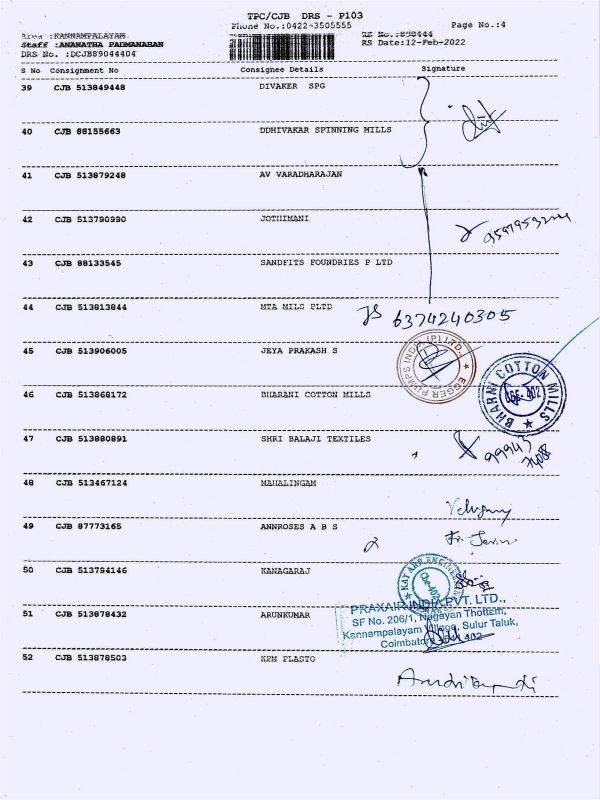 TPC/CJB DRS - P103
Phone No.:0422-3505555 Page No.:4
Area :KANNAMPALAYAM
Staff :ANANATHA PADMANABAN RS Date:12-Feb-2022
DRS No. :DCJB89044404
S No Consignment No Consignee Details Signature
39 CJB 513849448 DIVAKER SPG
40 CJB 88155663 DDHIVAKAR SPINNING MILLS
41 CJB 513879248 AV VARADHARAJAN
42 CJB 513790990 JOTHIMANI
43 CJB 88133545 SANDFITS FOUNDRIES P LTD
44 CJB 513813844 MTA MILS PLTD
6374240305
45 CJB 513906005 JEYA PRAKASH S
EGGER PUMPS INDIA (P) LTD.,
46 CJB 513868172 BHARANI COTTON MILLS
BHARNI COTTON MILLS
47 CJB 513880891 SHRI BALAJI TEXTILES
48 CJB 513467124 MAHALINGAM
49 CJB 87773165 ANNROSES A B S
50 CJB 513794146 KANAGARAJ
51 CJB 513878432 ARUNKUMAR
PRAXAIR INDIA PVT. LTD.,
SF No. 206/1, Nagayan Thottam,
Kannampalayam Village, Sulur Taluk,
Coimbatore 402
52 CJB 513878503 KPM PLASTO